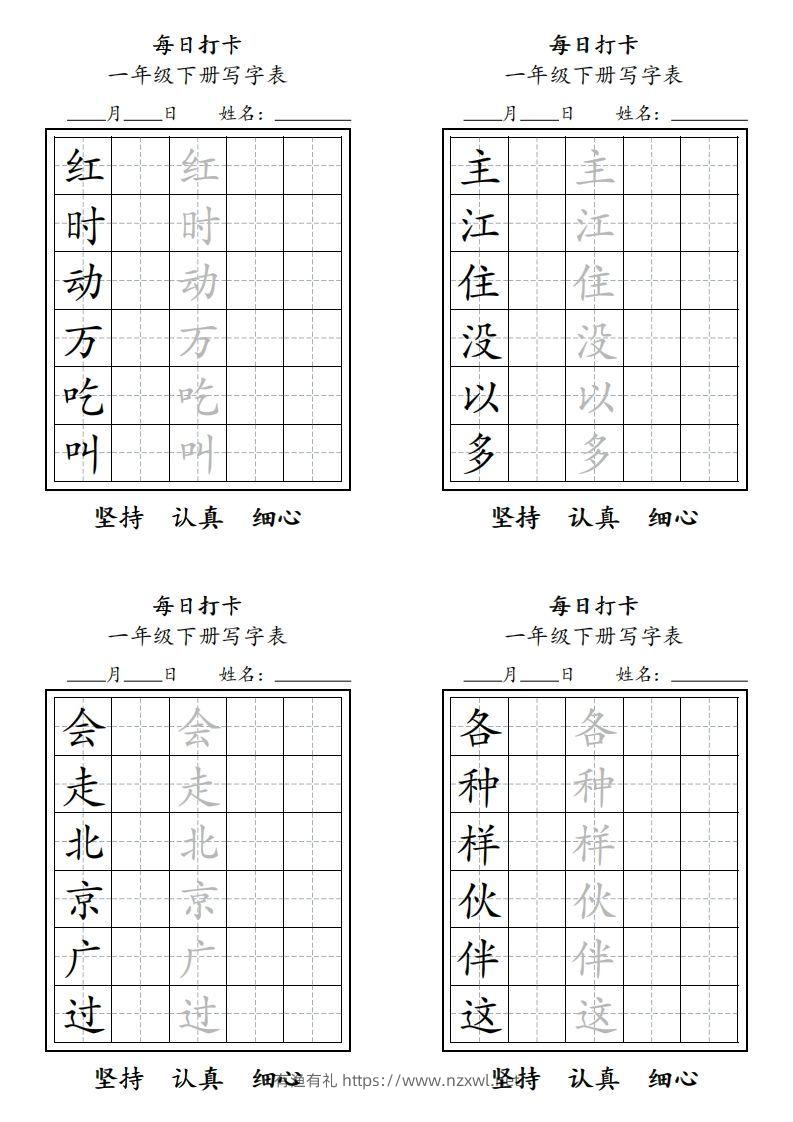 每日打卡
一年级下册写字表
____月____日 姓名：________
红 红
时 时
动 动
万 万
吃 吃
叫 叫
坚持 认真 细心
每日打卡
一年级下册写字表
____月____日 姓名：________
主 主
江 江
住 住
没 没
以 以
多 多
坚持 认真 细心
每日打卡
一年级下册写字表
____月____日 姓名：________
会 会
走 走
北 北
京 京
广 广
过 过
坚持 认真 细心
每日打卡
一年级下册写字表
____月____日 姓名：________
各 各
种 种
样 样
伙 伙
伴 伴
这 这
坚持 认真 细心
有渔有礼 https://www.nzxwl.net